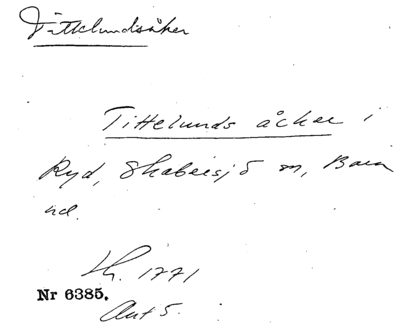 Tittelundsåker
Tittelunds åcker i
Ryd, Skabersjö sn, Bara
hd.
Lh. 1771
Nr 6385.
Akt 5.